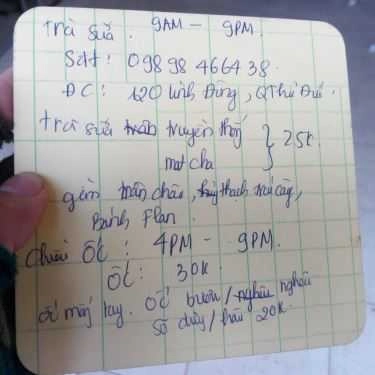 Trà sữa. 9AM - 9PM.
Sđt: 098 98 466 4 38.
ĐC: 120 Linh Đông, Q Thủ Đức.
trà sữa truyền thống } 25k.
matcha
gồm trân châu, thạch trái cây,
Bánh Flan.
Chiều Ốc: 4PM - 9PM.
Ốc: 30k.
ốc móng tay. Ốc bươu / nghêu
sò 20k.